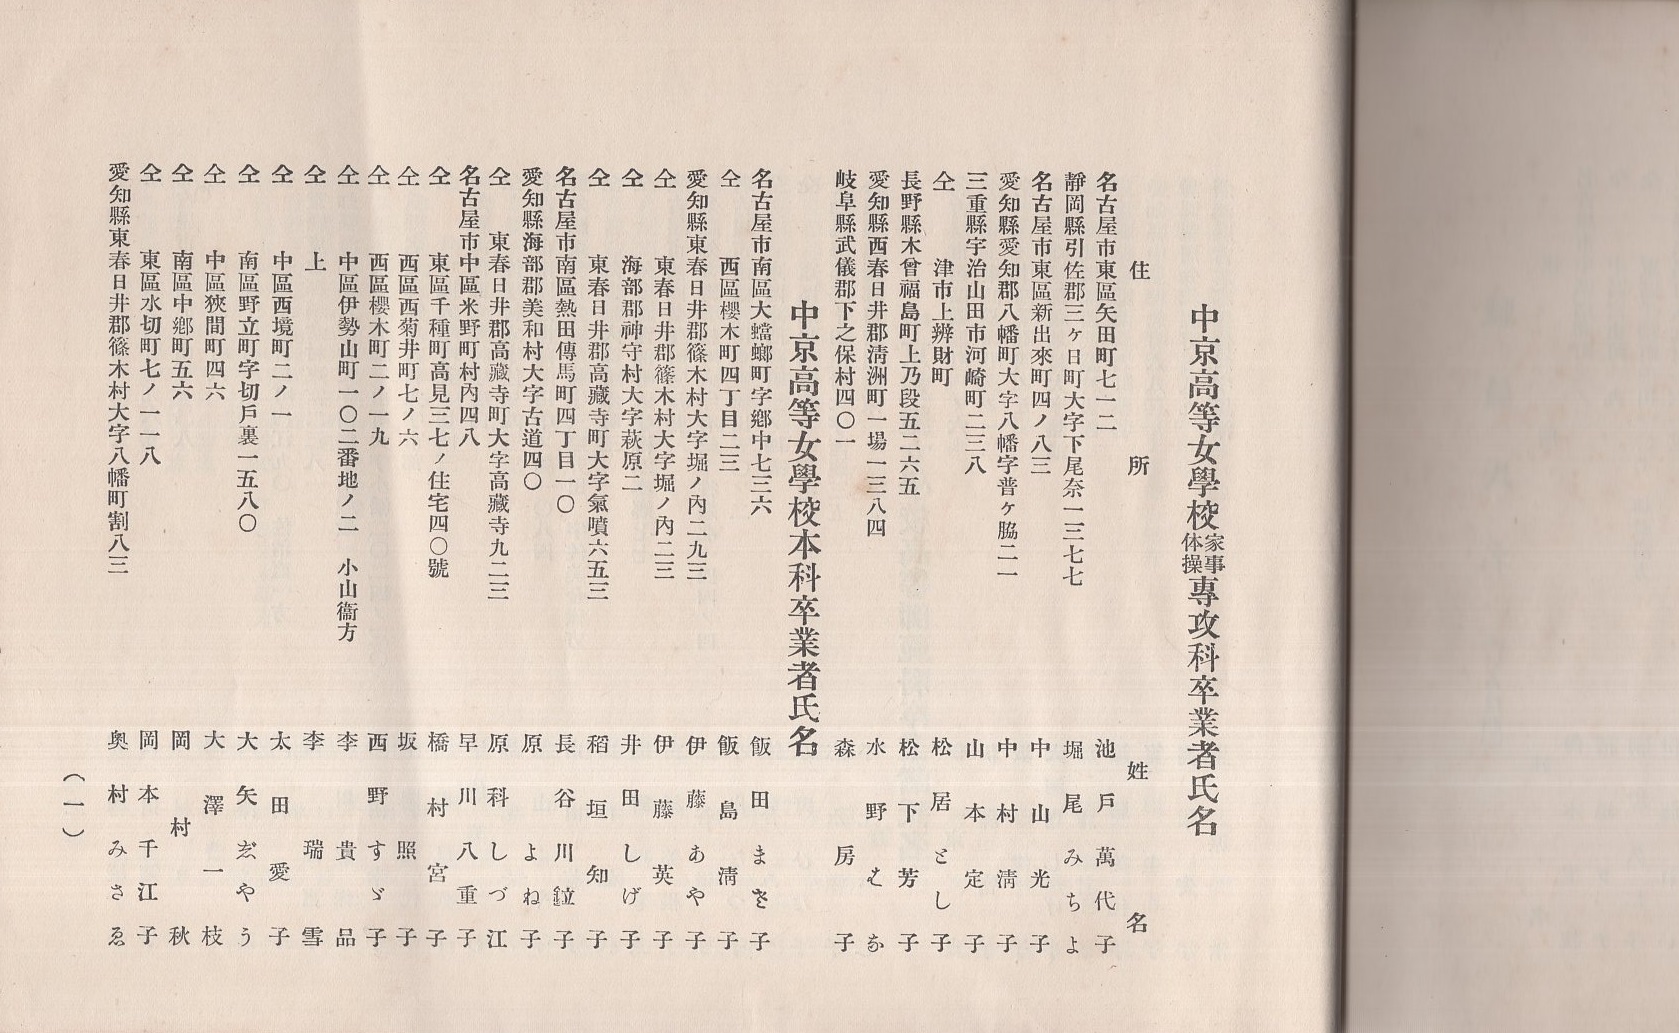 中京高等女學校家事体操專攻科卒業者氏名
住所 姓名
名古屋市東區矢田町七一二 池戸萬代子
靜岡縣引佐郡三ヶ日町大字下尾奈一三七七 堀尾みちよ
名古屋市東區新出來町四ノ八三 中山光子
愛知縣愛知郡八幡町大字八幡字普ヶ脇二一 中村淸子
三重縣宇治山田市河崎町二三八 山本定子
仝 津市上辨財町 松居とし子
長野縣木曾福島町上乃段五二六五 松下芳子
愛知縣西春日井郡淸洲町一場一三八四 水野はな
岐阜縣武儀郡下之保村四〇一 森房子
中京高等女學校本科卒業者氏名
名古屋市南區大蟷螂町字鄕中七三六 飯田まさ子
仝 西區櫻木町四丁目二三 飯島淸子
愛知縣東春日井郡篠木村大字堀ノ內二九三 伊藤あや子
仝 東春日井郡篠木村大字堀ノ內二三 伊藤英子
仝 海部郡神守村大字萩原二 井田しげ子
仝 東春日井郡高藏寺町大字氣噴六五三 稻垣知子
名古屋市南區熱田傳馬町四丁目一〇 長谷川鉝子
愛知縣海部郡美和村大字古道四〇 原よね子
仝 東春日井郡高藏寺町大字高藏寺九二三 原科しづ江
名古屋市中區米野町村內四八 早川八重子
仝 東區千種町高見三七ノ住宅四〇號 橋村宮子
仝 西區西菊井町七ノ六 坂照子
仝 西區櫻木町二ノ一九 西野すゞ子
仝 中區伊勢山町一〇二番地ノ二 小山衞方 李貴品
仝 上 李瑞雪
仝 中區西境町二ノ一 太田愛子
仝 南區野立町字切戶裏一五八〇 大矢ぢやう
仝 中區狹間町四六 大澤一枝
仝 南區中鄕町五六 岡村秋
仝 東區水切町七ノ一一八 岡本千江子
愛知縣東春日井郡篠木村大字八幡町割八三 奧村みさゑ
(一)